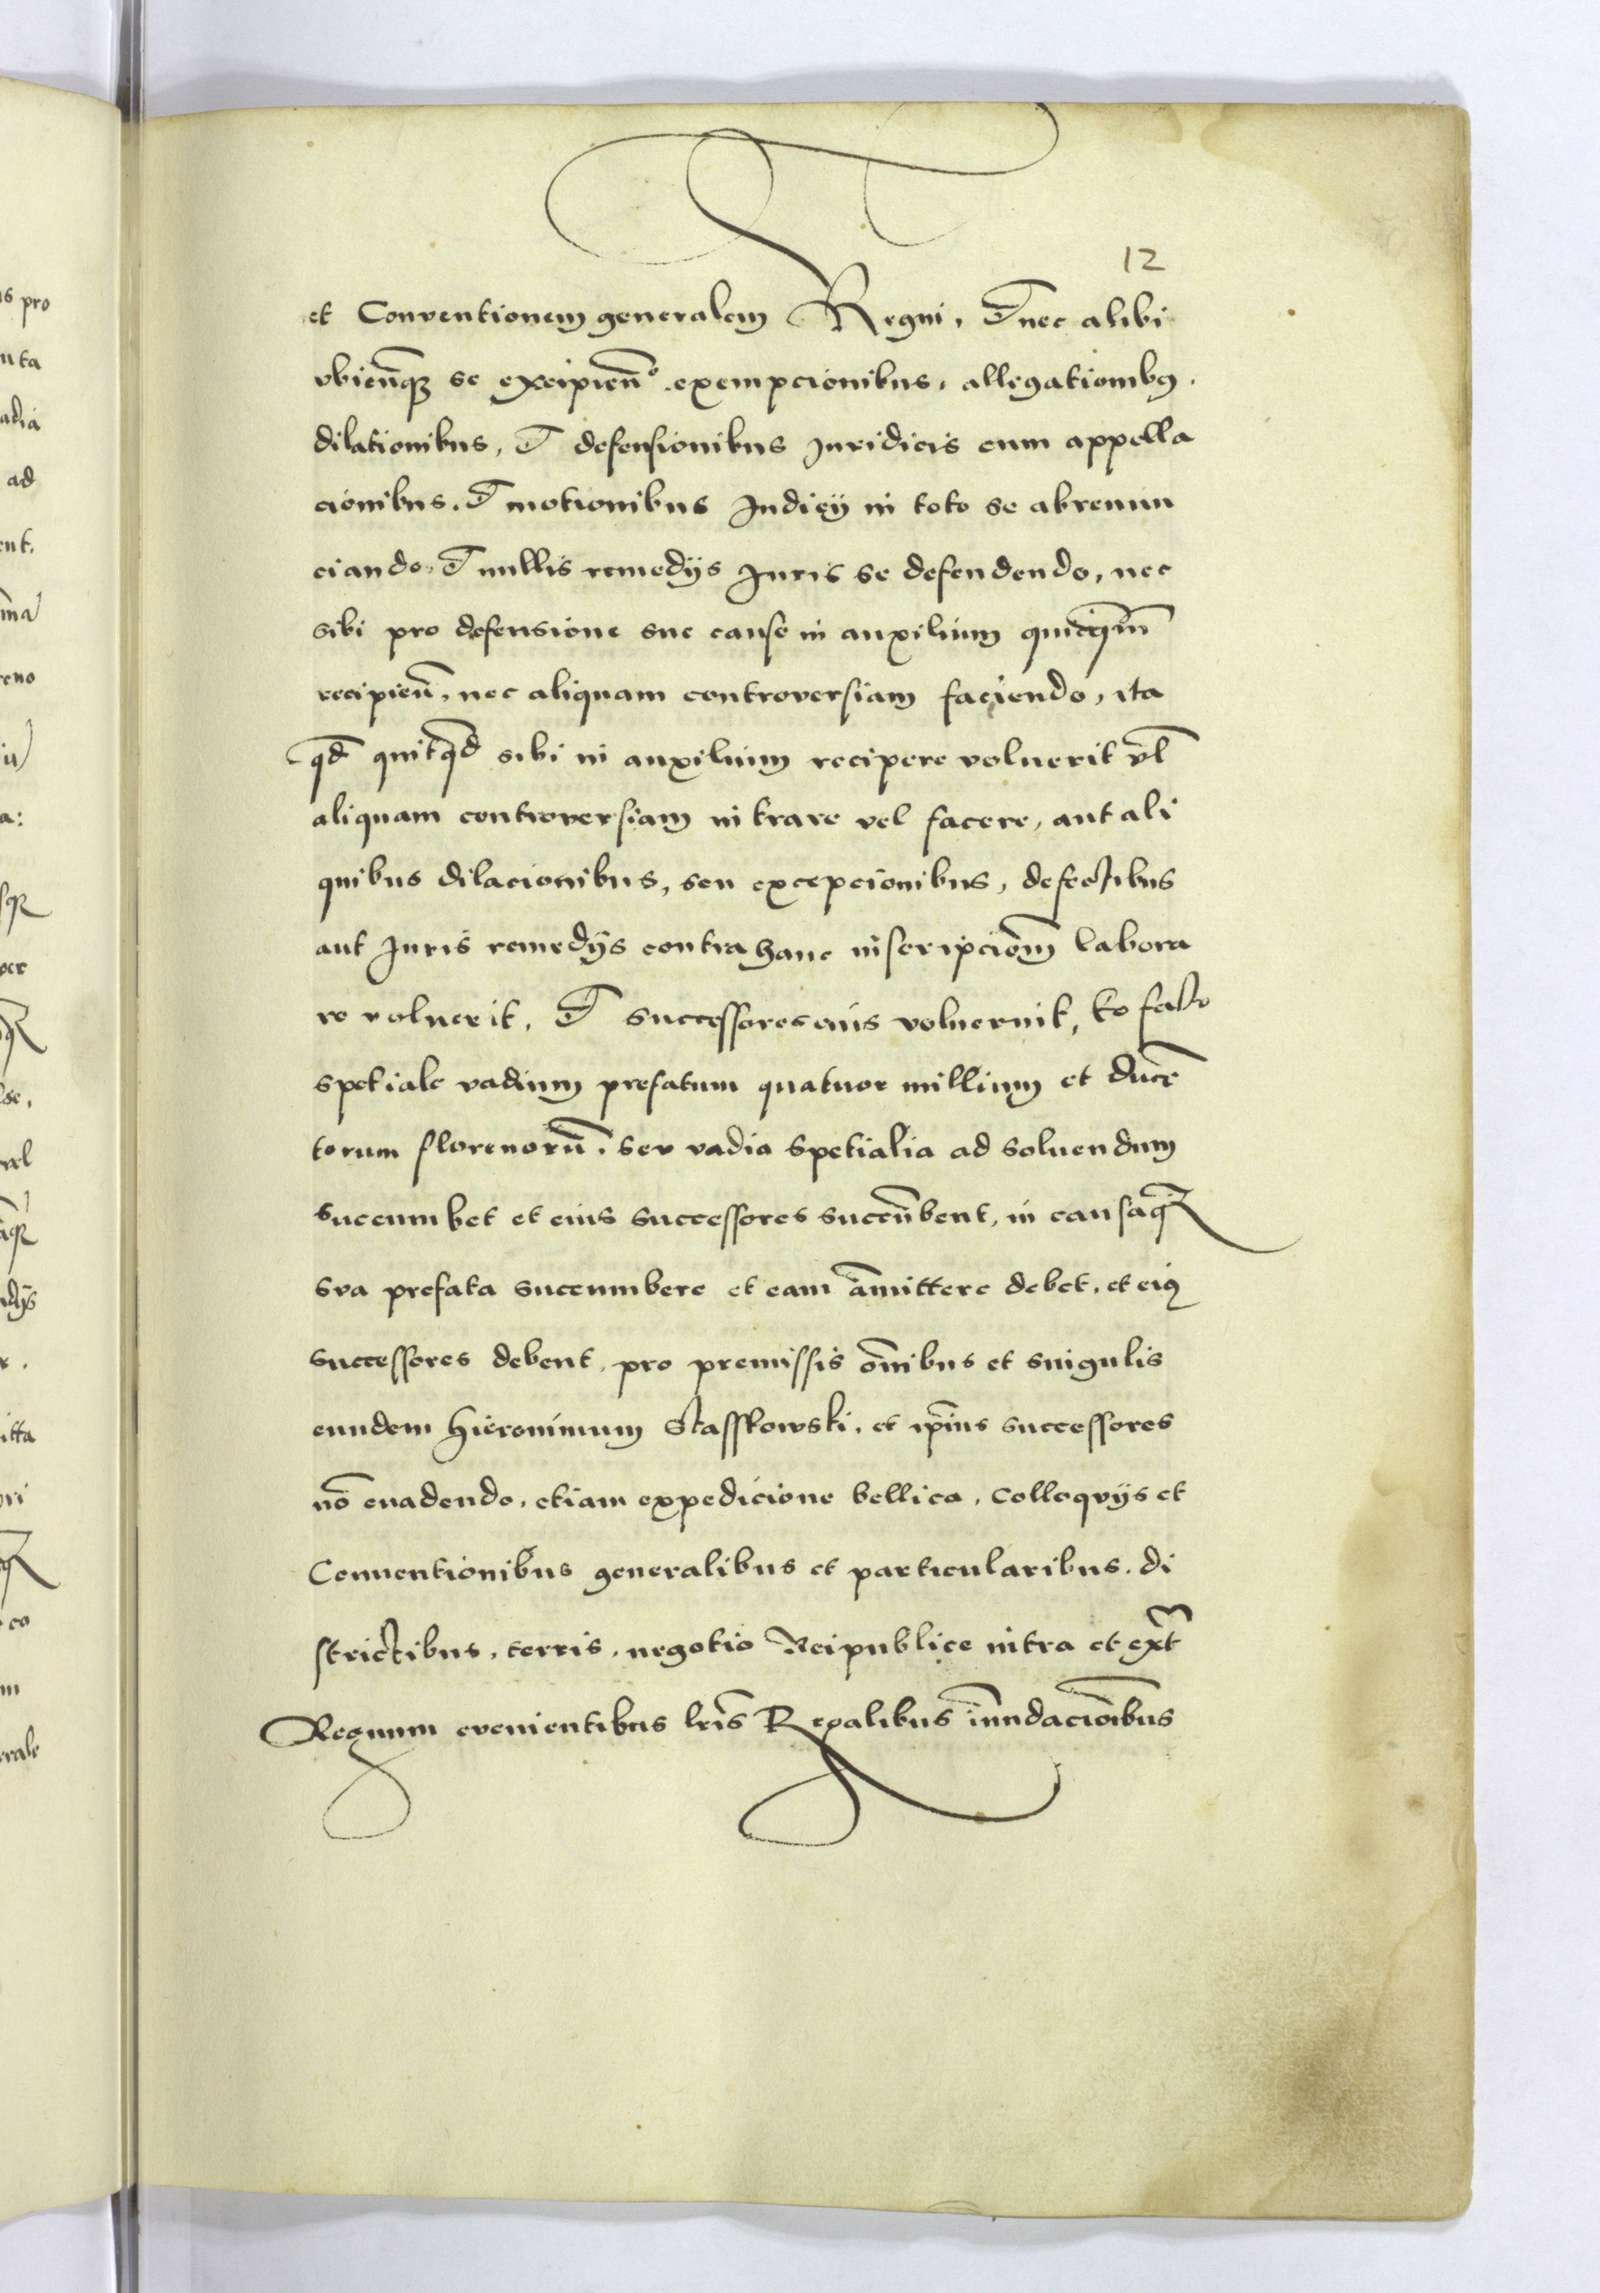 12
et Conventionem generalem Regni, Et nec alibi
vbicūqȝ se excipieñ. exempcionibus, allegationibꝰ.
dilationibus, Et defensionibus Juridicis cum appella
cionibus. Et motionibus Judicÿ in toto se abrenun
ciando. Et nullis remedÿs Juris se defendendo, nec
sibi pro defensione sue cause in auxilium
recipieñ, nec aliquam controversiam faciendo, ita
qd̄ quitqd̄ sibi in auxilium recipere voluerit vl̄
aliquam controversiam intrare vel facere, aut ali
quibus dilacionibus, seu excepcionibus, defectibus
aut Juris remedÿs contra hanc inscripciōm labora
re voluerit, Et successores eius voluerint, to facto
spetiale vadium prefatum quatuor millium et ducē
torum florenorū. sev vadia spetialia ad soluendum
succumbet et eius successores succūbent, in causaqȝ
sva prefata succumbere et eam āmittere debet. et eiꝰ
successores debent, pro premissis oībus et singulis
eundem Hieronimum Stasskowski, et ip̄ius successores
nō euadendo, etiam expedicione bellica, Colloqvÿs et
Conuentionibus generalibus et particularibus. di
strictibus, terris, negotio Reipublice intra et ext
Regnum evenientibus lr̄is Regalibus īnudaciōibus
s pro
nta
adia
ad
ent.
eno
a:
lse,
vel
dÿs
itta
co
m
rale